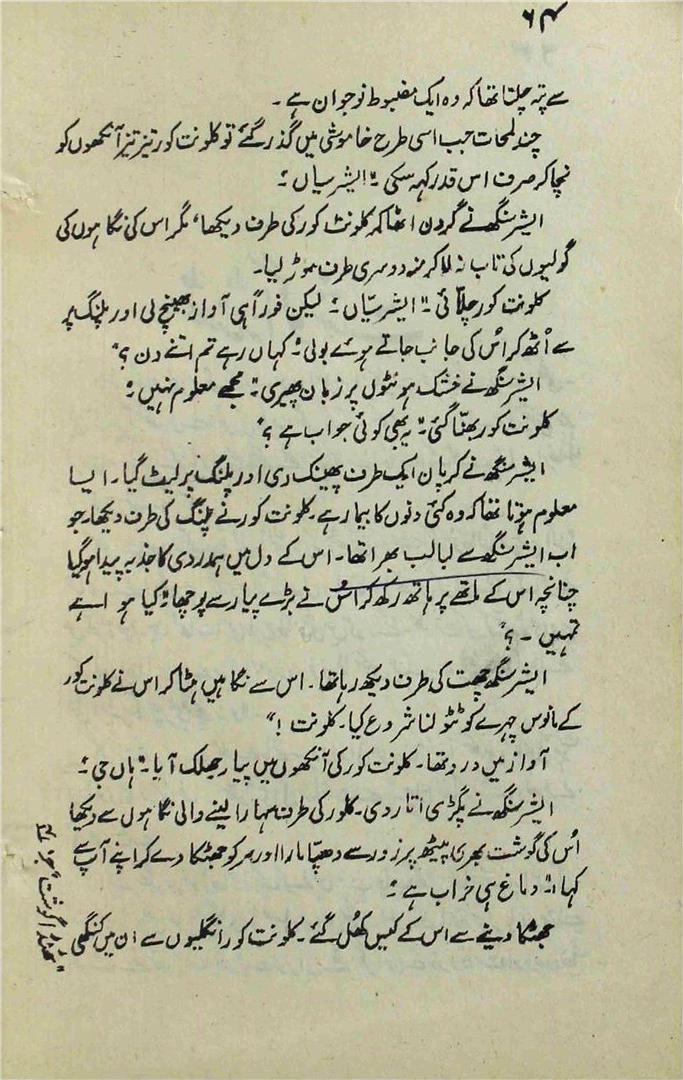 ۶۴
سے پتہ چلتا تھا کہ وہ ایک مضبوط نوجوان ہے ۔
چند لمحات جب اسی طرح خاموشی میں گذر گئے تو کلونت کور تیز تیز آنکھوں کو
نچا کر صرف اس قدر کہہ سکی ۔ "ایشر سیاں"
ایشر سنگھ نے گردن اٹھا کر کلونت کور کی طرف دیکھا ، مگر اس کی نگاہوں کی
گولیوں کی تاب نہ لا کر منہ دوسری طرف موڑ لیا۔
کلونت کور چلّائی ۔ "ایشر سیّاں" لیکن فوراً ہی آواز بھینچ لی اور پلنگ پر
سے اُٹھ کر اُس کی جانب جاتے ہوئے بولی ۔" کہاں رہے تم اتنے دن ؟"
ایشر سنگھ نے خشک ہونٹوں پر زبان پھیری ۔" مجھے معلوم نہیں ۔"
کلونت کور بھنّا گئی ۔" یہ بھی کوئی جواب ہے ؟"
ایشر سنگھ نے کرپان ایک طرف پھینک دی اور پلنگ پر لیٹ گیا ۔ ایسا
معلوم ہوتا تھا کہ وہ کئی دنوں کا بیمار ہے ۔ کلونت کور نے پلنگ کی طرف دیکھا ۔ جو
اب ایشر سنگھ سے لبالب بھرا تھا ۔ اس کے دل میں ہمدردی کا جذبہ پیدا ہو گیا
چنانچہ اس کے ماتھے پر ہاتھ رکھ کر اُس نے بڑے پیار سے پوچھا ۔" کیا ہوا ہے
تمہیں ۔ ؟"
ایشر سنگھ چھت کی طرف دیکھ رہا تھا ۔ اس سے نگاہیں ہٹا کر اس نے کلونت کور
کے مانوس چہرے کو ٹٹولنا شروع کیا ۔ "کلونت !"
آواز میں درد تھا ۔ کلونت کور کی آنکھوں میں پیار جھلک آیا ۔" ہاں جی ۔"
ایشر سنگھ نے پگڑی اتار دی ۔ کلور کی طرف سہارا لینے والی نگاہوں سے دیکھا
اُس کی گوشت بھری پیٹھ پر زور سے دھپّا مارا اور سر کو جھٹکا دے کر اپنے آپ سے
کہا ۔" دماغ ہی خراب ہے ۔"
جھٹکا دینے سے اس کے کیس کھل گئے ۔ کلونت کور انگلیوں سے ان میں کنگھی
"ٹھنڈا گوشت"